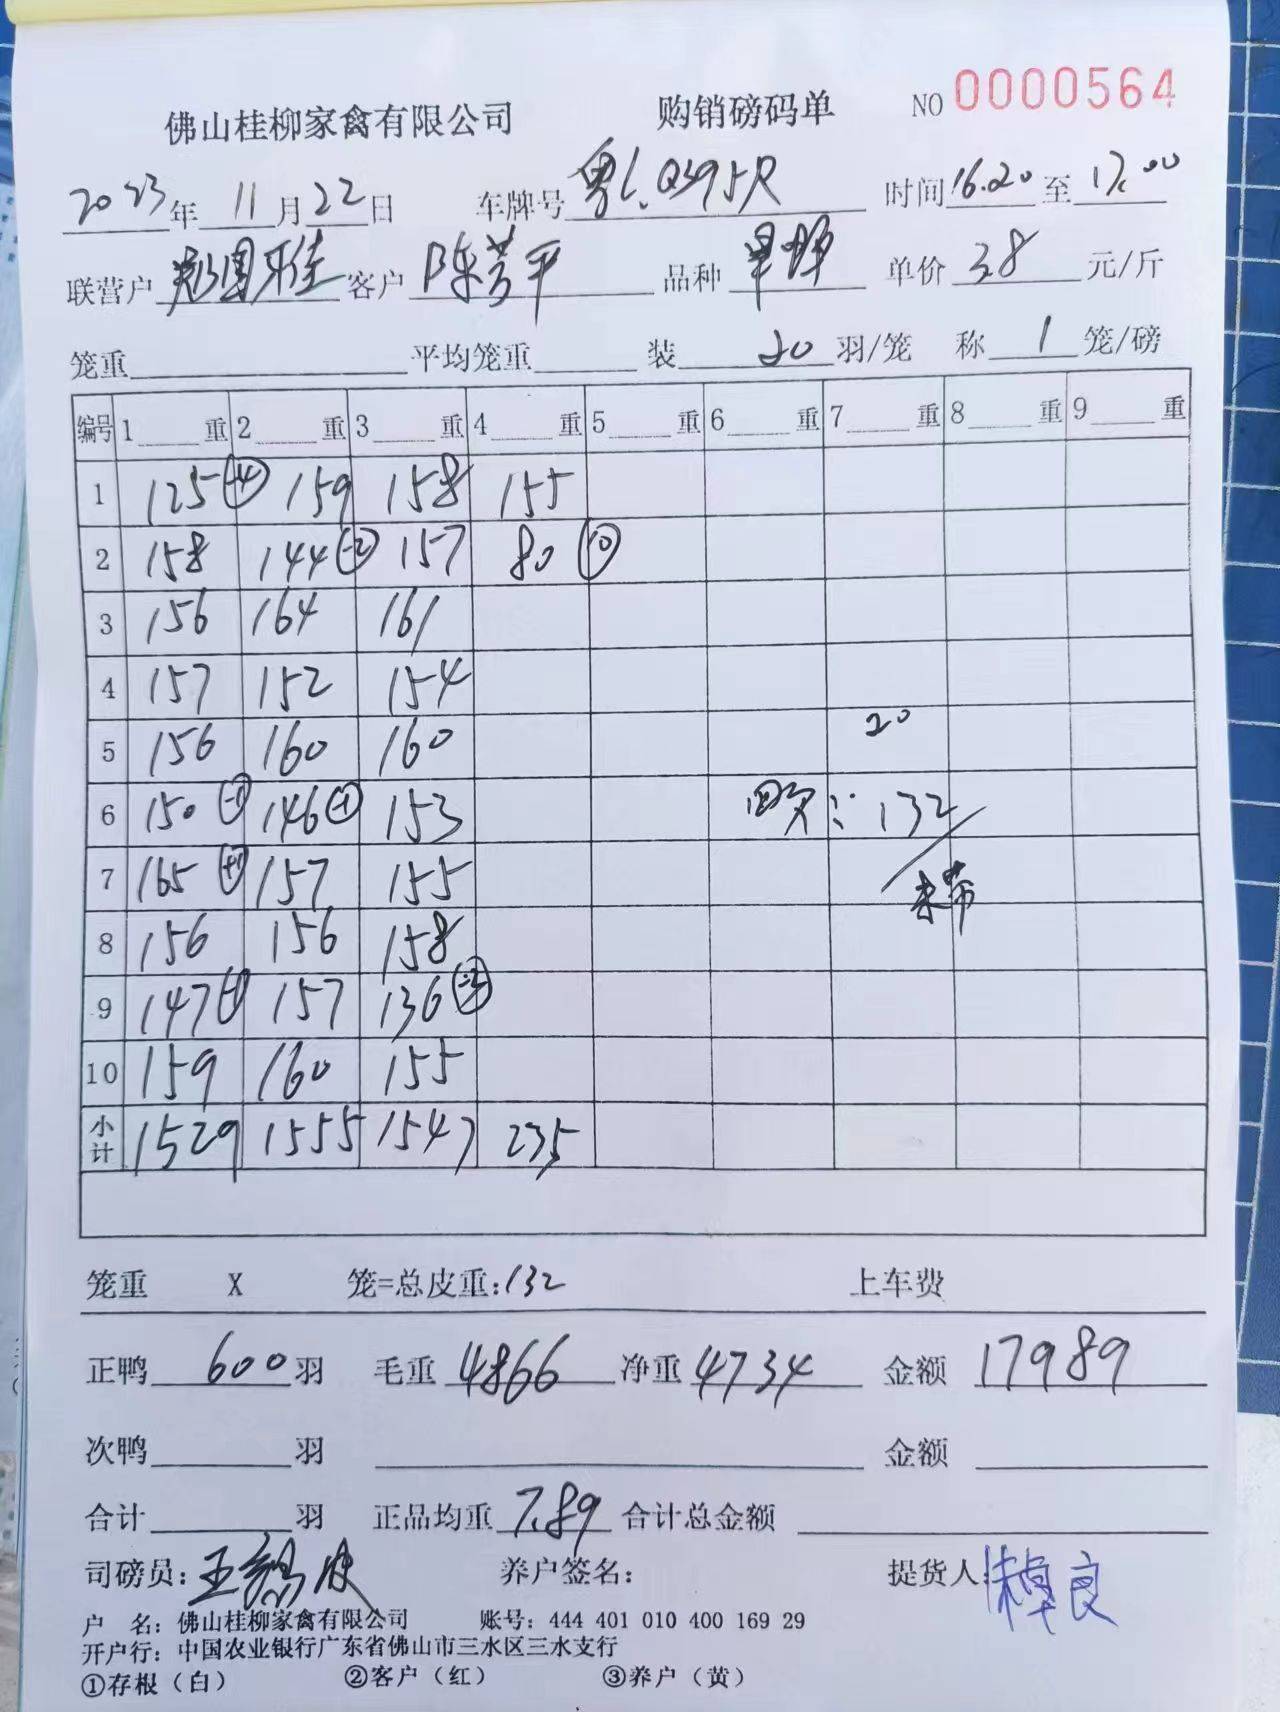 佛山桂柳家禽有限公司 购销磅码单 NO 0000564
2023年 11月22日 车牌号 时间16.20至17.00
联营户 客户 陈芳平 品种 单价 3.8 元/斤
笼重 平均笼重 装 20 羽/笼 称 1 笼/磅
编号 1 重 2 重 3 重 4 重 5 重 6 重 7 重 8 重 9 重
1 125 (-4) 159 158 155
2 158 144 (-2) 157 80 (10)
3 156 164 161
4 157 152 154
5 156 160 160 20
6 150 (-1) 146 (-1) 153 132
7 165 (+1) 157 155
8 156 156 158
9 147 (-1) 157 136
10 159 160 155
小计 1529 1555 1547 235
笼重 X 笼=总皮重:132 上车费
正鸭 600 羽 毛重 4866 净重 4734 金额 17989
次鸭 羽 金额
合计 羽 正品均重 7.89 合计总金额
司磅员: 养户签名: 提货人:
户 名: 佛山桂柳家禽有限公司 账号: 444 401 010 400 169 29
开户行: 中国农业银行广东省佛山市三水区三水支行
①存根（白） ②客户（红） ③养户（黄）